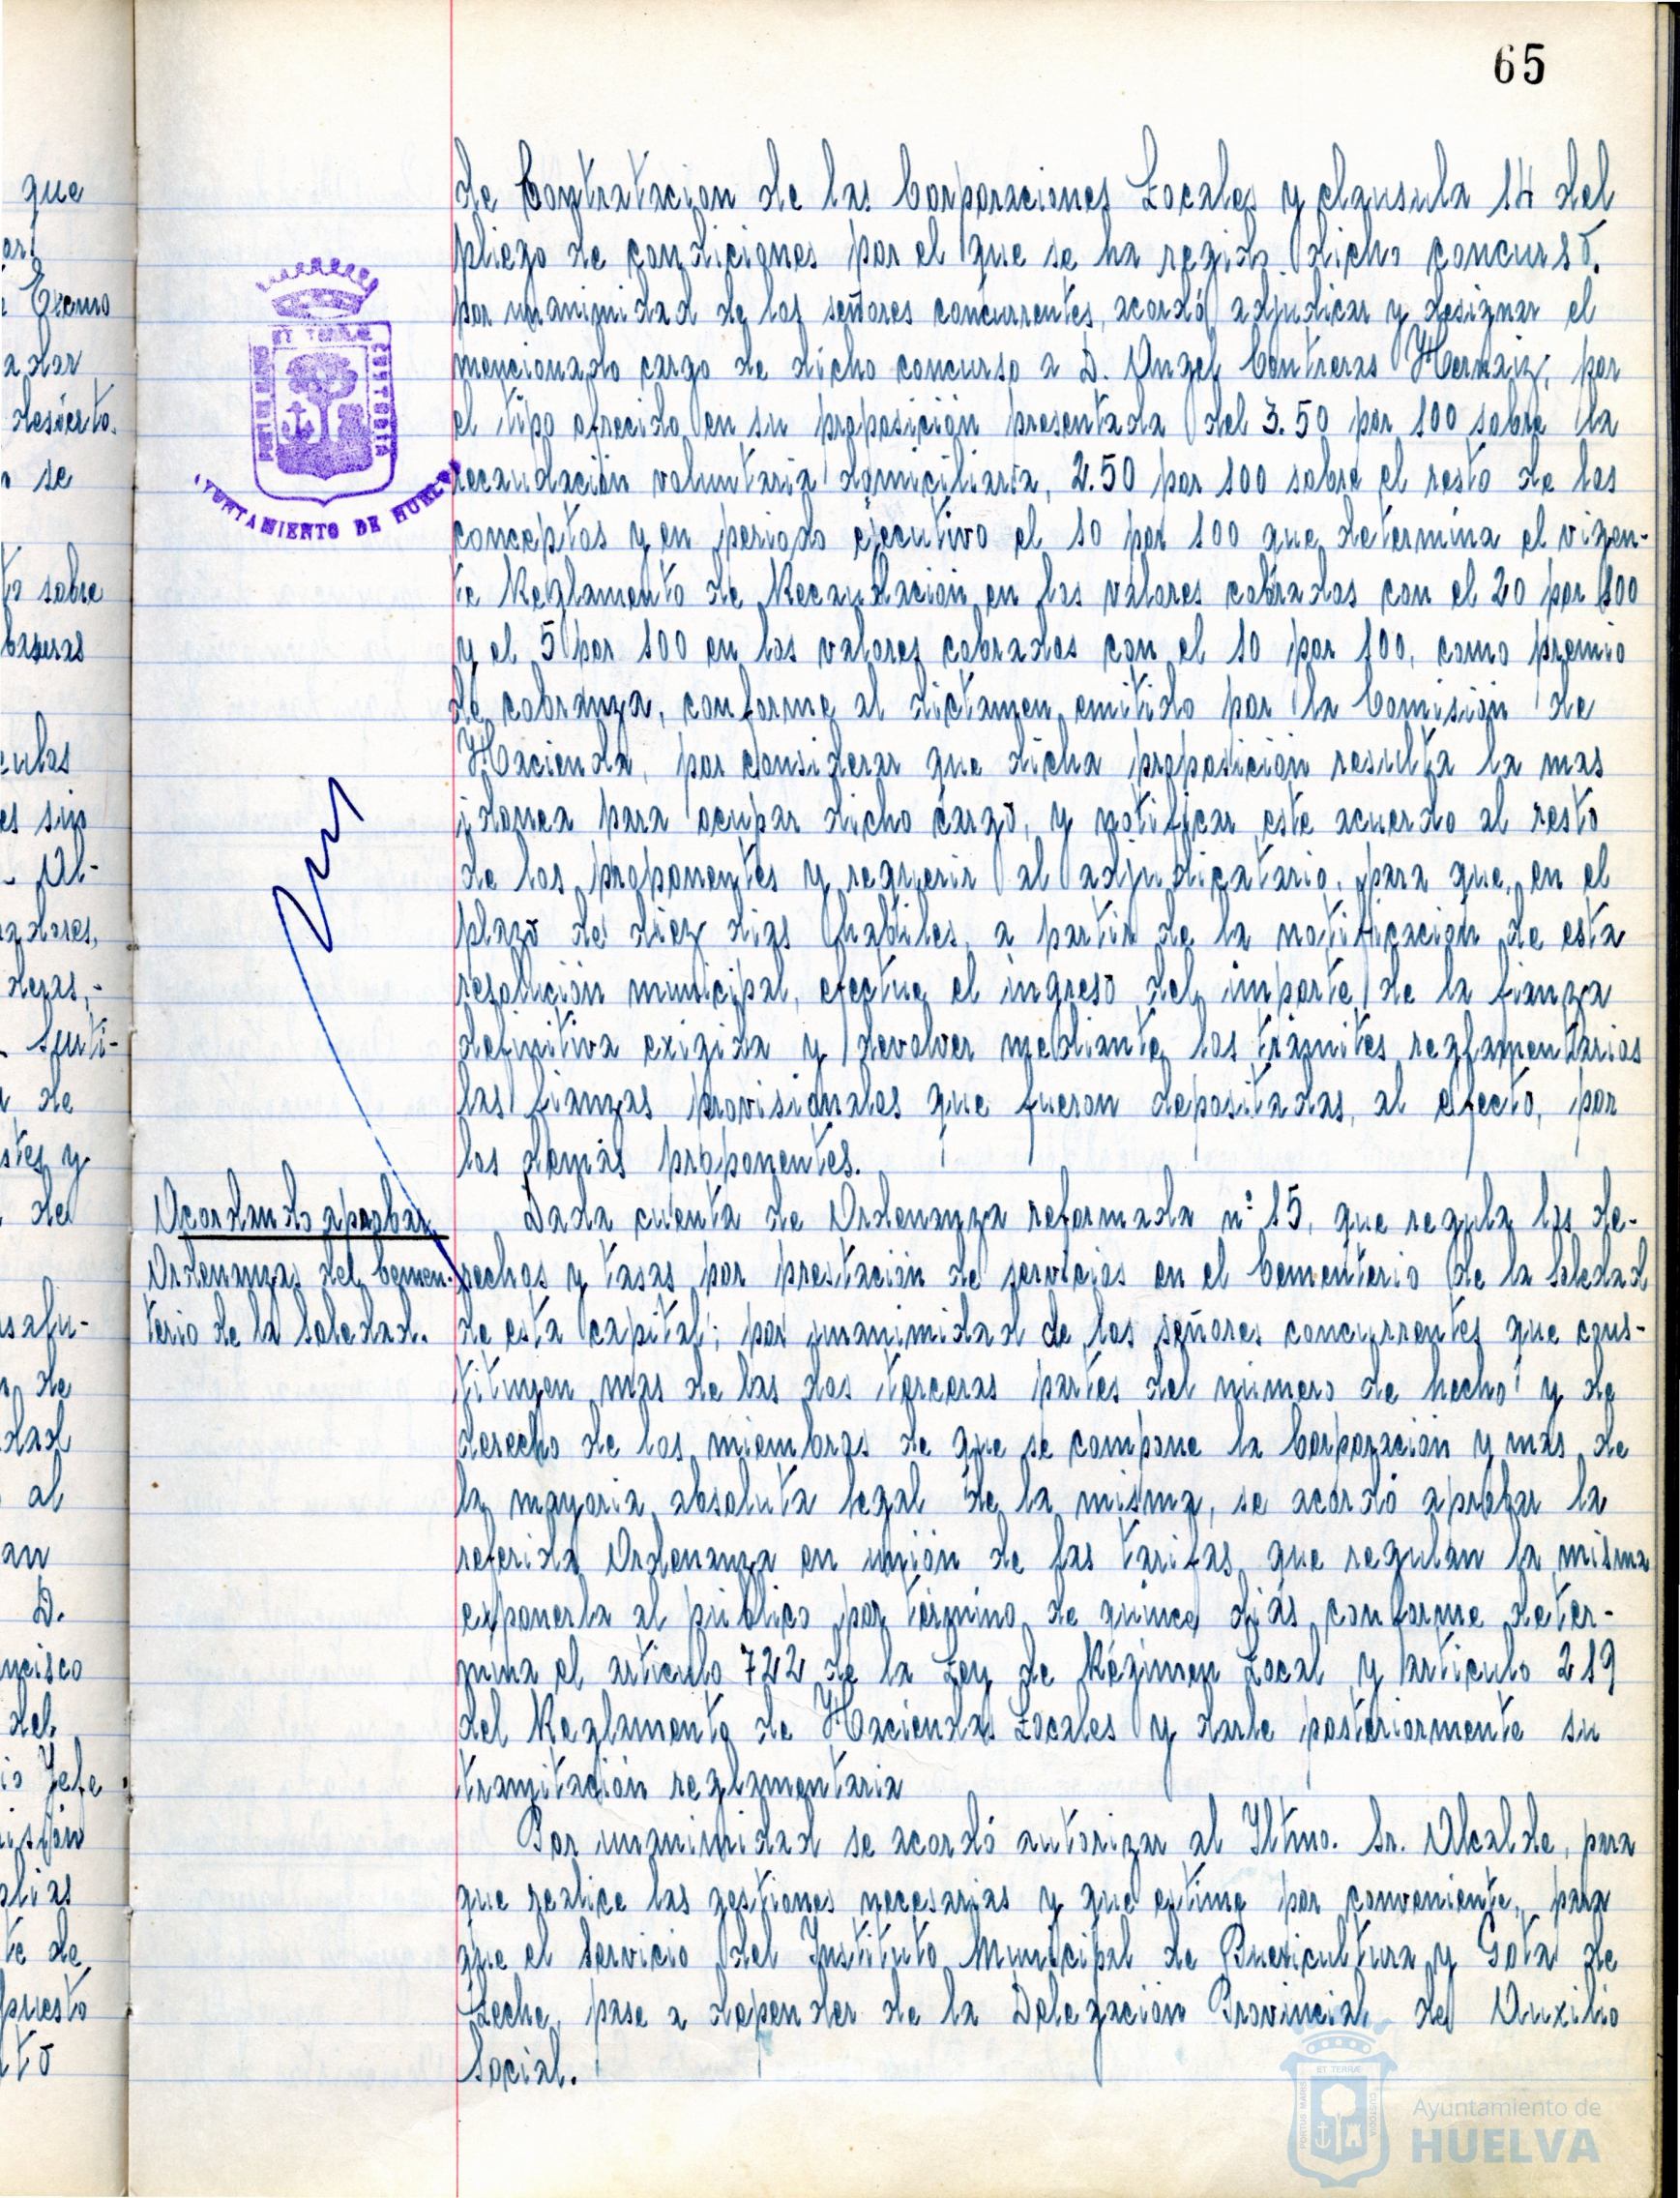 65
de Contratacion de las Corporaciones Locales y clausula 14 del
pliego de condiciones por el que se ha regido dicho concurso.
por unanimidad de los señores concurrentes, acordó adjudicar y designar el
mencionado cargo de dicho concurso a D. Angel Contreras Hernaiz, por
el tipo ofrecido en su proposición presentada del 3.50 por 100 sobre la
recaudación voluntaria domiciliaria, 2.50 por 100 sobre el resto de los
conceptos y en periodo ejecutivo el 10 por 100 que determina el vigen-
te Reglamento de Recaudación en los valores cobrados con el 20 por 100
y el 5 por 100 en los valores cobrados con el 10 por 100, como premio
de cobranza, conforme al dictamen emitido por la Comisión de
Hacienda, por considerar que dicha proposicion resulta la mas
idonea para ocupar dicho cargo, y notificar este acuerdo al resto
de los proponentes y requerir al adjudicatario, para que, en el
plazo de diez dias habiles, a partir de la notificación de esta
resolución municipal, efectue el ingreso del importe de la fianza
definitiva exigida y devolver mediante los trámites reglamentarios
las fianzas provisionales que fueron depositadas, al efecto, por
los demás proponentes.
Acordando aprobar
Ordenanzas del Cemen-
terio de la Soledad.
Dada cuenta de Ordenanza reformada nº 15, que regula los de-
rechos y tasas por prestación de servicios en el Cementerio de la Soledad
de esta capital; por unanimidad de los señores concurrentes que cons-
tituyen mas de las dos terceras partes del número de hecho y de
derecho de los miembros de que se compone la Corporación y más de
la mayoria absoluta legal de la misma, se acordó aprobar la
referida Ordenanza en unión de las tarifas que regulan la misma
exponerla al público por término de quince dias conforme deter-
mina el articulo 722 de la Ley de Régimen Local y articulo 219
del Reglamento de Haciendas Locales y darle posteriormente su
tramitación reglamentaria
Por unanimidad se acordó autorizar al Iltmo. Sr. Alcalde, para
que realice las gestiones necesarias y que estime por conveniente, para
que el Servicio del Instituto Municipal de Puericultura y Gota de
Leche, pase a depender de la Delegación Provincial de Auxilio
Social.
AYUNTAMIENTO DE HUELVA
que
Excmo
a dar
desierto.
se
to sobre
basuras
culos
es sin
Al-
adores,
deras,-
de
stes y
de
de
dad
al
an
D.
ncisco
del
Jefe
isión
te de
puesto
Ayuntamiento de
HUELVA